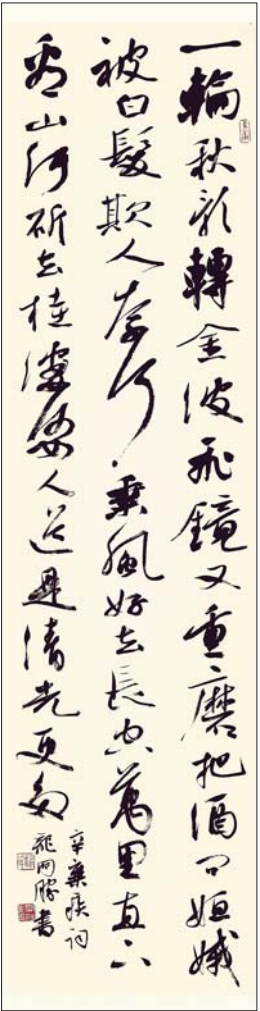 一輪秋影轉金波飛鏡又重磨把酒問姮娥
被白髮欺人奈何乘風好去長空萬里直下
看山河斫去桂婆娑人道是清光更多
辛棄疾詞
龍開勝書